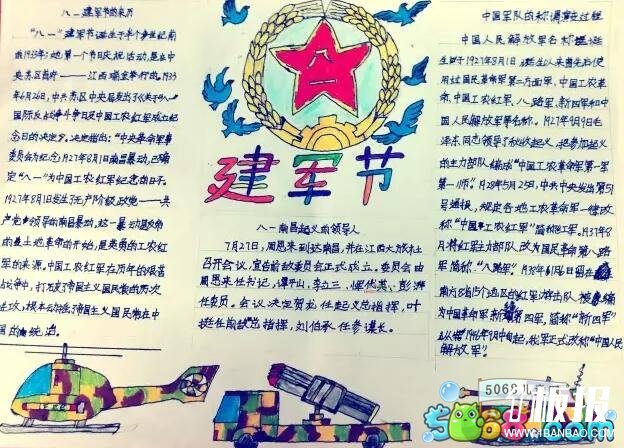 八一建军节的来历
"八一"建军节诞生于半个多世纪前
的1933年,第一个节日庆祝活动,是在中
央苏区首府——江西瑞金举行的。1933
年6月26日,中共苏区中央局发出了《关于"八一"
国际反战争斗争日及中国工农红军成立纪
念日的决定》。决定指出:"中央革命军事
委员会为纪念1927年8月1日南昌暴动,已确
定"八一"为中国工农红军纪念的日子。
1927年8月1日发生了无产阶级政党——共
产党领导的南昌暴动,这一暴动是反帝
的土地革命的开始,是英勇的工农红
军的来源。中国工农红军在历年的艰苦
战争中,打破了帝国主义国民党的历次
进攻,根本动摇了帝国主义国民党在中
国的统治。
建军节
八一南昌起义的领导人
7月27日,周恩来到达南昌,并在江西大旅社
召开会议,宣告前敌委员会正式成立。委员会由
周恩来任书记,谭平山、李立三、恽代英、彭湃
任委员。会议决定贺龙任起义总指挥,叶
挺任前敌总指挥,刘伯承任参谋长。
中国军队的称谓演变过程
中国人民解放军名称诞
生于1927年8月1日,诞生以来曾先后使
用过国民革命军第二方面军,中国工农革
命军,中国工农红军,八路军,新四军和中
国人民解放军等名称。1927年9月9日毛
泽东同志领导了秋收起义,把参加起义
的主力部队编成"中国工农革命军第一军
第一师"。1928年5月25日,中共中央发出第51
号通报,规定各地工农革命军一律改
称"中国工农红军"简称红军。1937年8
月将红军主力部队改为国民革命第八路
军简称"八路军"。
南方8省15个地区的红军游击队
为中国革命军新编第四军,简称"新四军"
1946年9月中旬起,我军正式改称"中国人民
解放军"
5068儿
板报
WWW.1BANBAO.COM